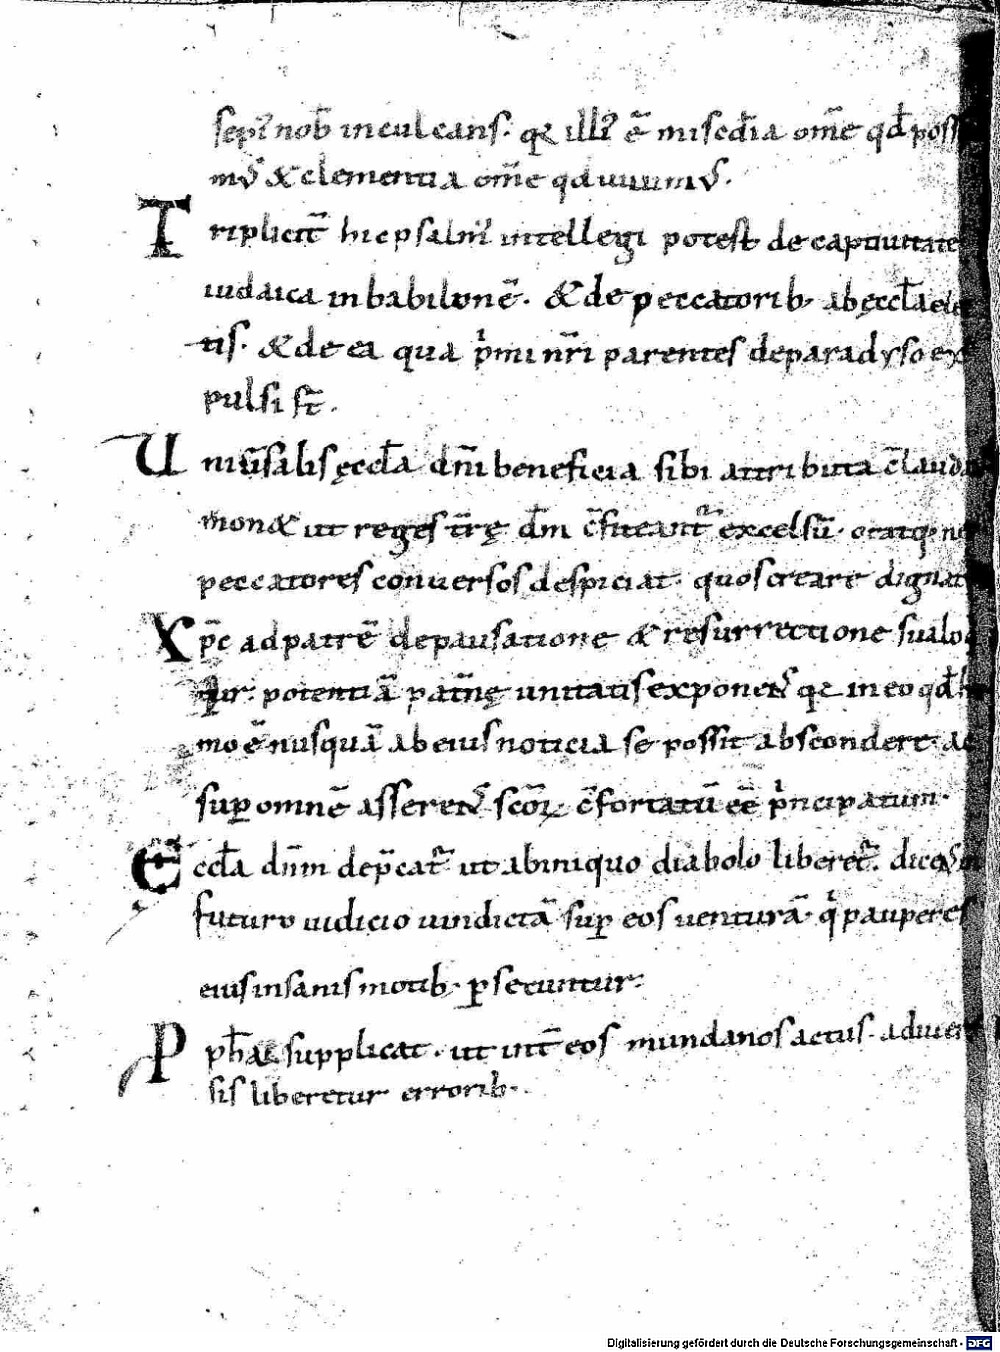 sepi᷒ nob̅ inculcans. qꝛ illi᷒ ē misedīa om̅e qđ poss
mꝰ & clementia om̅e qđ uiuimꝰ.
Triplicit̅ hic psalm᷒ intellegi potest de captiuitate
iudaica in babilone᷒. & de peccatorib· ab ęccl̅a eiec
tis. & de ea qua p̍mi nr̅i parentes de paradyso ex
pulsi st̅.
Uniu̅salis ęccl̅a dn̅i beneficia sibi attributa c̅laudat
monet ut reges tr̅ę dm̅ c̅fiteant᷑ excelsū. oratq· ne
peccatores conuersos despiciat. quos creare dignat
Xp̅c ad patrē de pausatione & resurrectione sua loq
tur. potentiā patn̅ę unitatis exponens qꝛ in eo qđ ho
mo ē nusquā ab eius noticia se possit abscondere. ac
suꝑ omnē asserens sc̅oꝝ c̅fortatū eē p̍ncipatum.
Eccl̅a dn̅m dep̅cat᷑ ut ab iniquo diabolo liberet᷑. dicens in
futuro iudicio uindictā suꝑ eos uenturā. q̍ pauperes
eius insanis motib· ꝑsecuntur.
P ph̅a supplicat. ut int̅ eos mundanos actus. a diuer
sis liberetur errorib·
Digitalisierung gefördert durch die Deutsche Forschungsgemeinschaft - DFG